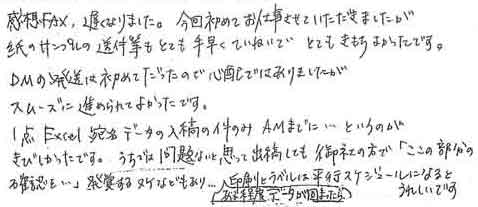 感想FAX、遅くなりました。今回初めてお仕事させていただきましたが
紙のサンプルの送付等もとても手早くていねいで とてもきもちよかったです。
DMの発送は初めてだったので心配ではありましたが
スムーズに進められてよかったです。
1点 Excel 宛名データの入稿の件のみ AMまでに… というのが
きびしかったです。 うちでは問題ないと思って出稿しても 御社の方で「ここの部分の
確認を…」発覚する ヌケなどもあり… 印刷とラベルは平行スケジュールになると
ある程度データが固まったら うれしいです